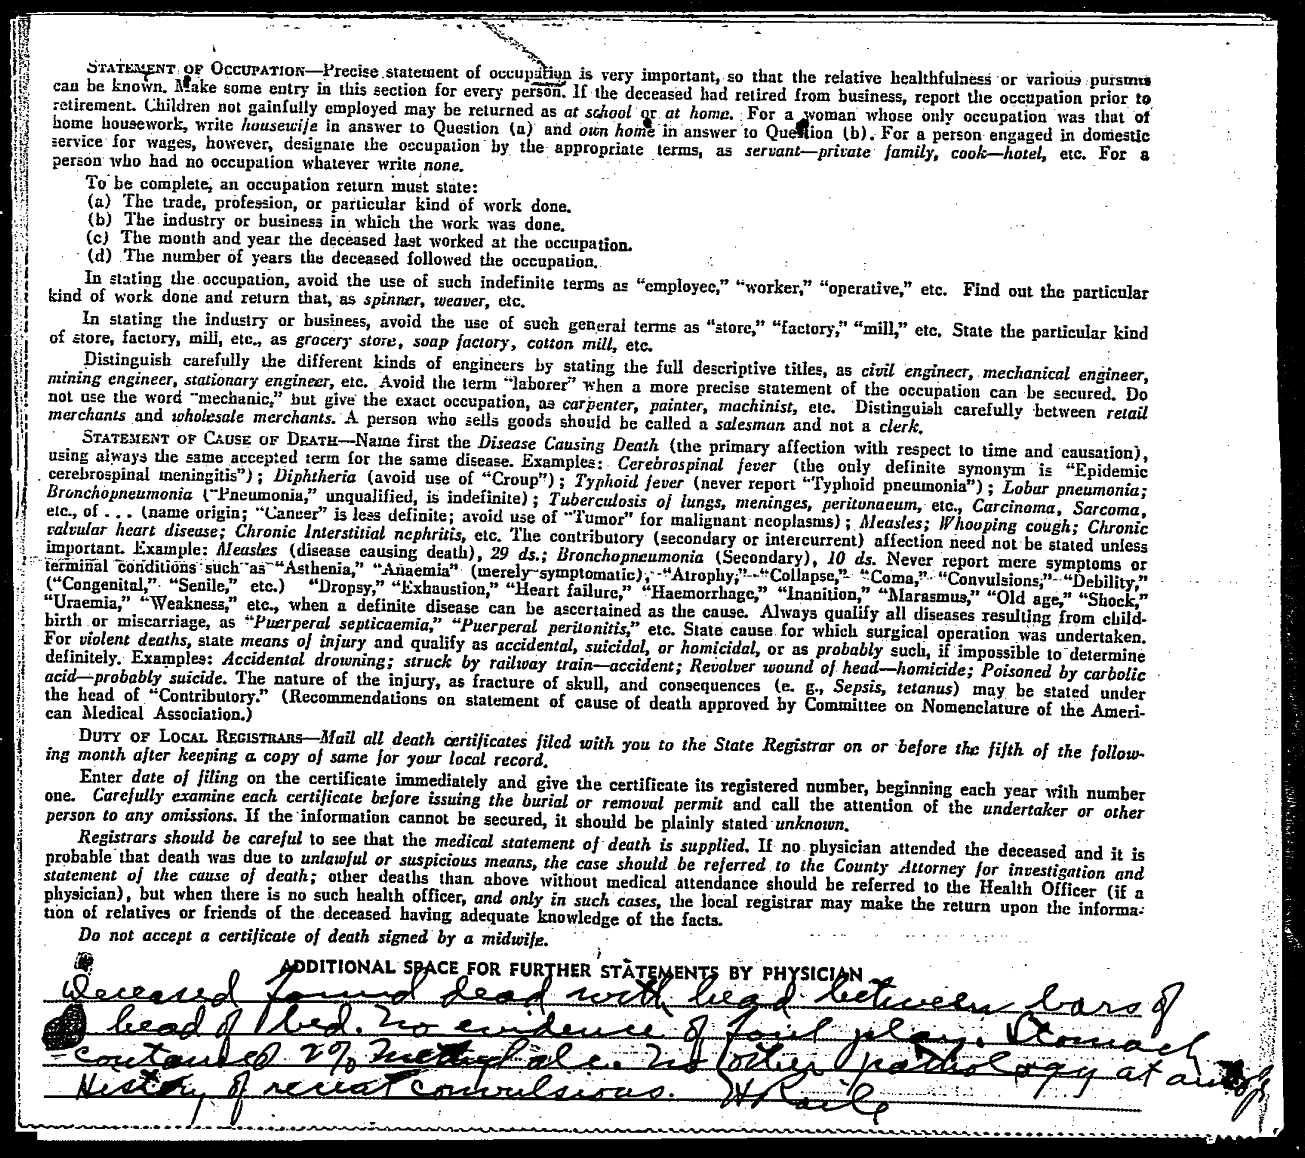 STATEMENT OF OCCUPATION—Precise statement of occupation is very important, so that the relative healthfulness or various pursuits
can be known. Make some entry in this section for every person. If the deceased had retired from business, report the occupation prior to
retirement. Children not gainfully employed may be returned as at school or at home. For a woman whose only occupation was that of
home housework, write housewife in answer to Question (a) and own home in answer to Question (b). For a person engaged in domestic
service for wages, however, designate the occupation by the appropriate terms, as servant—private family, cook—hotel, etc. For a
person who had no occupation whatever write none.
To be complete, an occupation return must state:
(a) The trade, profession, or particular kind of work done.
(b) The industry or business in which the work was done.
(c) The month and year the deceased last worked at the occupation.
(d) The number of years the deceased followed the occupation.
In stating the occupation, avoid the use of such indefinite terms as “employee,” “worker,” “operative,” etc. Find out the particular
kind of work done and return that, as spinner, weaver, etc.
In stating the industry or business, avoid the use of such general terms as “store,” “factory,” “mill,” etc. State the particular kind
of store, factory, mill, etc., as grocery store, soap factory, cotton mill, etc.
Distinguish carefully the different kinds of engineers by stating the full descriptive titles, as civil engineer, mechanical engineer,
mining engineer, stationary engineer, etc. Avoid the term “laborer” when a more precise statement of the occupation can be secured. Do
not use the word “mechanic,” but give the exact occupation, as carpenter, painter, machinist, etc. Distinguish carefully between retail
merchants and wholesale merchants. A person who sells goods should be called a salesman and not a clerk.
STATEMENT OF CAUSE OF DEATH—Name first the Disease Causing Death (the primary affection with respect to time and causation),
using always the same accepted term for the same disease. Examples: Cerebrospinal fever (the only definite synonym is “Epidemic
cerebrospinal meningitis”); Diphtheria (avoid use of “Croup”); Typhoid fever (never report “Typhoid pneumonia”); Lobar pneumonia;
Bronchopneumonia (“Pneumonia,” unqualified, is indefinite); Tuberculosis of lungs, meninges, peritonaeum, etc., Carcinoma, Sarcoma,
etc., of . . . (name origin; “Cancer” is less definite; avoid use of “Tumor” for malignant neoplasms); Measles; Whooping cough; Chronic
valvular heart disease; Chronic Interstitial nephritis, etc. The contributory (secondary or intercurrent) affection need not be stated unless
important. Example: Measles (disease causing death), 29 ds.; Bronchopneumonia (Secondary), 10 ds. Never report mere symptoms or
terminal conditions such as “Asthenia,” “Anaemia” (merely symptomatic), “Atrophy,” “Collapse,” “Coma,” “Convulsions,” “Debility,”
(“Congenital,” “Senile,” etc.) “Dropsy,” “Exhaustion,” “Heart failure,” “Haemorrhage,” “Inanition,” “Marasmus,” “Old age,” “Shock,”
“Uraemia,” “Weakness,” etc., when a definite disease can be ascertained as the cause. Always qualify all diseases resulting from child-
birth or miscarriage, as “Puerperal septicaemia,” “Puerperal peritonitis,” etc. State cause for which surgical operation was undertaken.
For violent deaths, state means of injury and qualify as accidental, suicidal, or homicidal, or as probably such, if impossible to determine
definitely. Examples: Accidental drowning; struck by railway train—accident; Revolver wound of head—homicide; Poisoned by carbolic
acid—probably suicide. The nature of the injury, as fracture of skull, and consequences (e. g., Sepsis, tetanus) may be stated under
the head of “Contributory.” (Recommendations on statement of cause of death approved by Committee on Nomenclature of the Ameri-
can Medical Association.)
DUTY OF LOCAL REGISTRARS—Mail all death certificates filed with you to the State Registrar on or before the fifth of the follow-
ing month after keeping a copy of same for your local record.
Enter date of filing on the certificate immediately and give the certificate its registered number, beginning each year with number
one. Carefully examine each certificate before issuing the burial or removal permit and call the attention of the undertaker or other
person to any omissions. If the information cannot be secured, it should be plainly stated unknown.
Registrars should be careful to see that the medical statement of death is supplied. If no physician attended the deceased and it is
probable that death was due to unlawful or suspicious means, the case should be referred to the County Attorney for investigation and
statement of the cause of death; other deaths than above without medical attendance should be referred to the Health Officer (if a
physician), but when there is no such health officer, and only in such cases, the local registrar may make the return upon the informa-
tion of relatives or friends of the deceased having adequate knowledge of the facts.
Do not accept a certificate of death signed by a midwife.
ADDITIONAL SPACE FOR FURTHER STATEMENTS BY PHYSICIAN
Deceased found dead with head between bars of
head of bed. No evidence of foul play. Stomach
contained 2% Methyl alc. No other pathology at
History of recent convulsions.